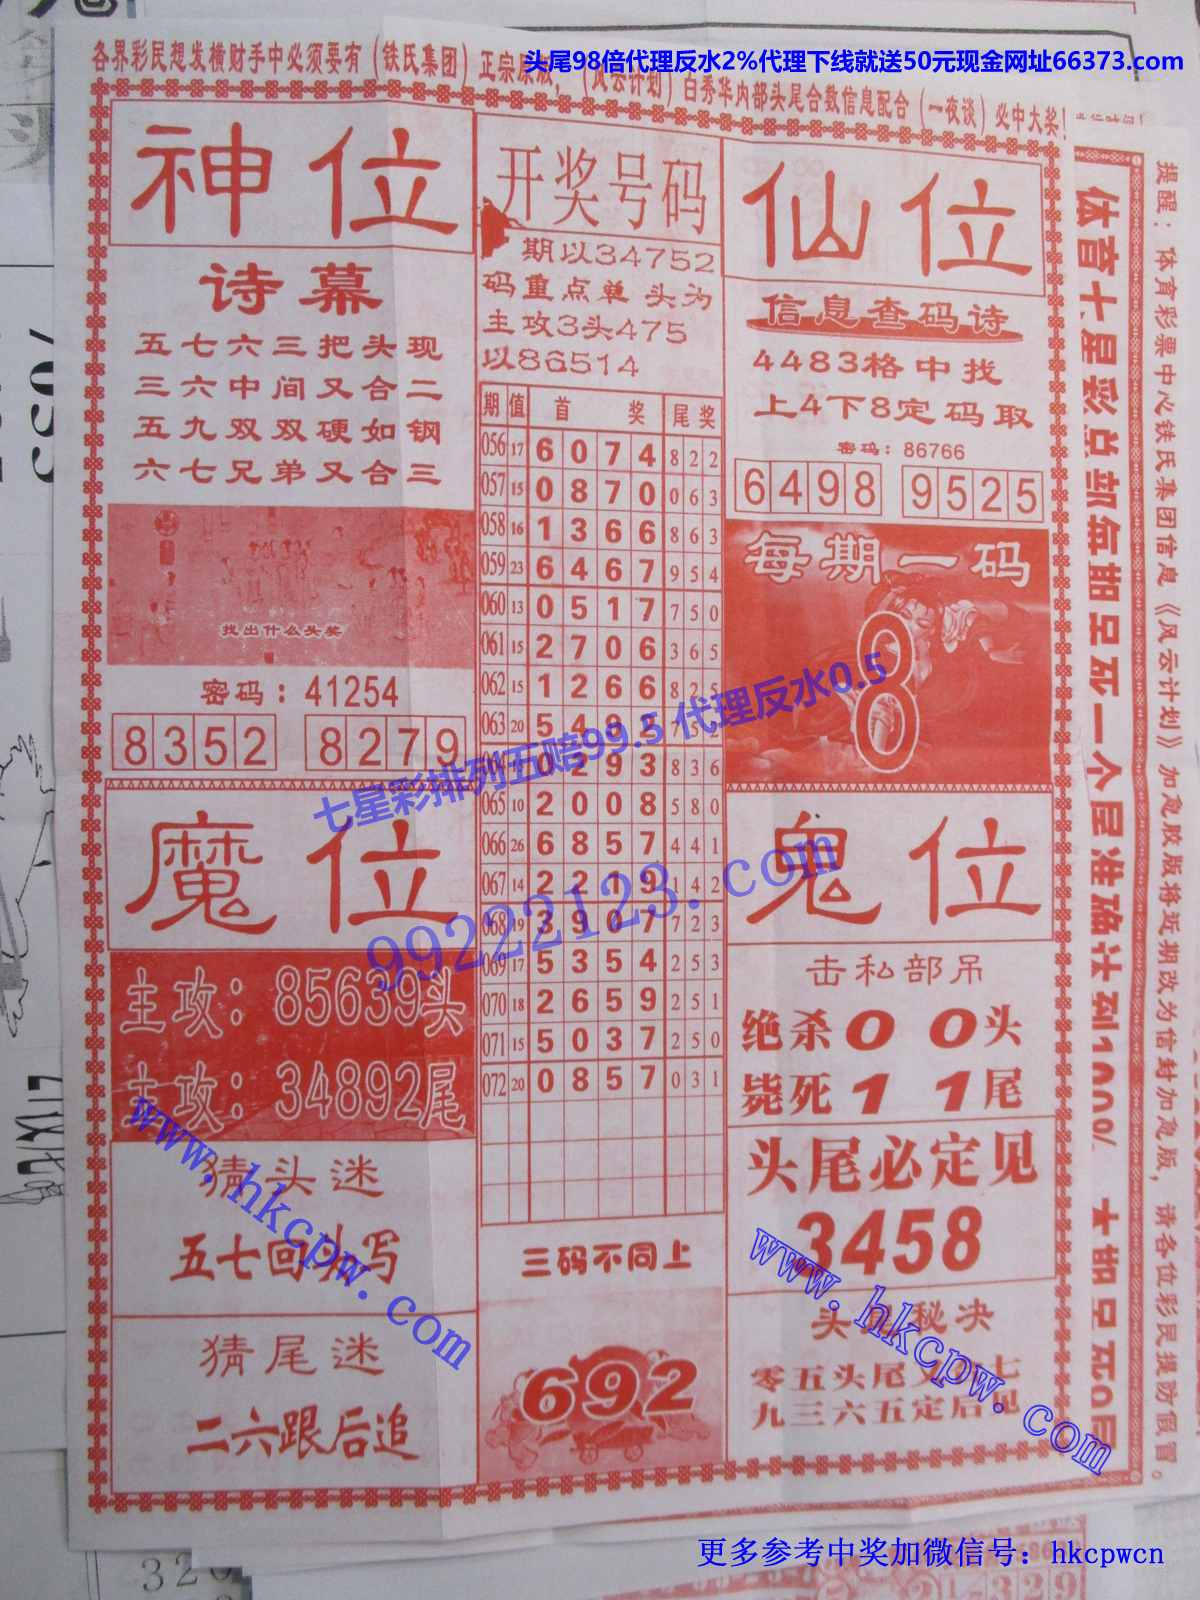 头尾98倍代理反水2%代理下线就送50元现金网址66373.com
各界彩民想发横财手中必须要有（铁氏集团）正宗原版，
（风云计划）白秀华内部头尾合数信息配合（一夜谈）必中大奖！
神位
诗幕
五七六三把头现
三六中间又合二
五九双双硬如钢
六七兄弟又合三
找出什么头奖
密码：41254
8352 8279
魔位
主攻：85639头
主攻：34892尾
猜头迷
五七回头写
猜尾迷
二六跟后追
开奖号码
期以34752
码重点单 头为
主攻3头475
以86514
期 值 首奖 尾奖
056 17 6 0 7 4 8 2 2
057 15 0 8 7 0 0 6 3
058 16 1 3 6 6 8 6 3
059 23 6 4 6 7 9 5 4
060 13 0 5 1 7 7 5 0
061 15 2 7 0 6 3 6 5
062 15 1 2 6 6 8 2
063 20 5 4 9 2 7
0 2 9 3 8 3 6
065 10 2 0 0 8 5 8 0
066 26 6 8 5 7 4 4 1
067 14 2 2 1 9 1 4 2
068 19 3 9 0 7 7 2 3
069 17 5 3 5 4 2 5 3
070 18 2 6 5 9 2 5 1
071 15 5 0 3 7 2 5 0
072 20 0 8 5 7 0 3 1
三码不同上
692
仙位
信息查码诗
4483格中找
上4下8定码取
密码：86766
6498 9525
每期一码
8
鬼位
击私部吊
绝杀0 0头
毙死1 1尾
头尾必定见
3458
头尾秘决
零五头尾又 七
九三六五定后见
提醒：体育彩票中心铁氏集团信息《风云计划》加急胶版将近期改为信封加急版，请各位彩民提防假冒。
七星彩排列五赔99.5 代理反水0.5
99222123.com
www.hkcpw.com
www.hkcpw.com
更多参考中奖加微信号：hkcpwcn